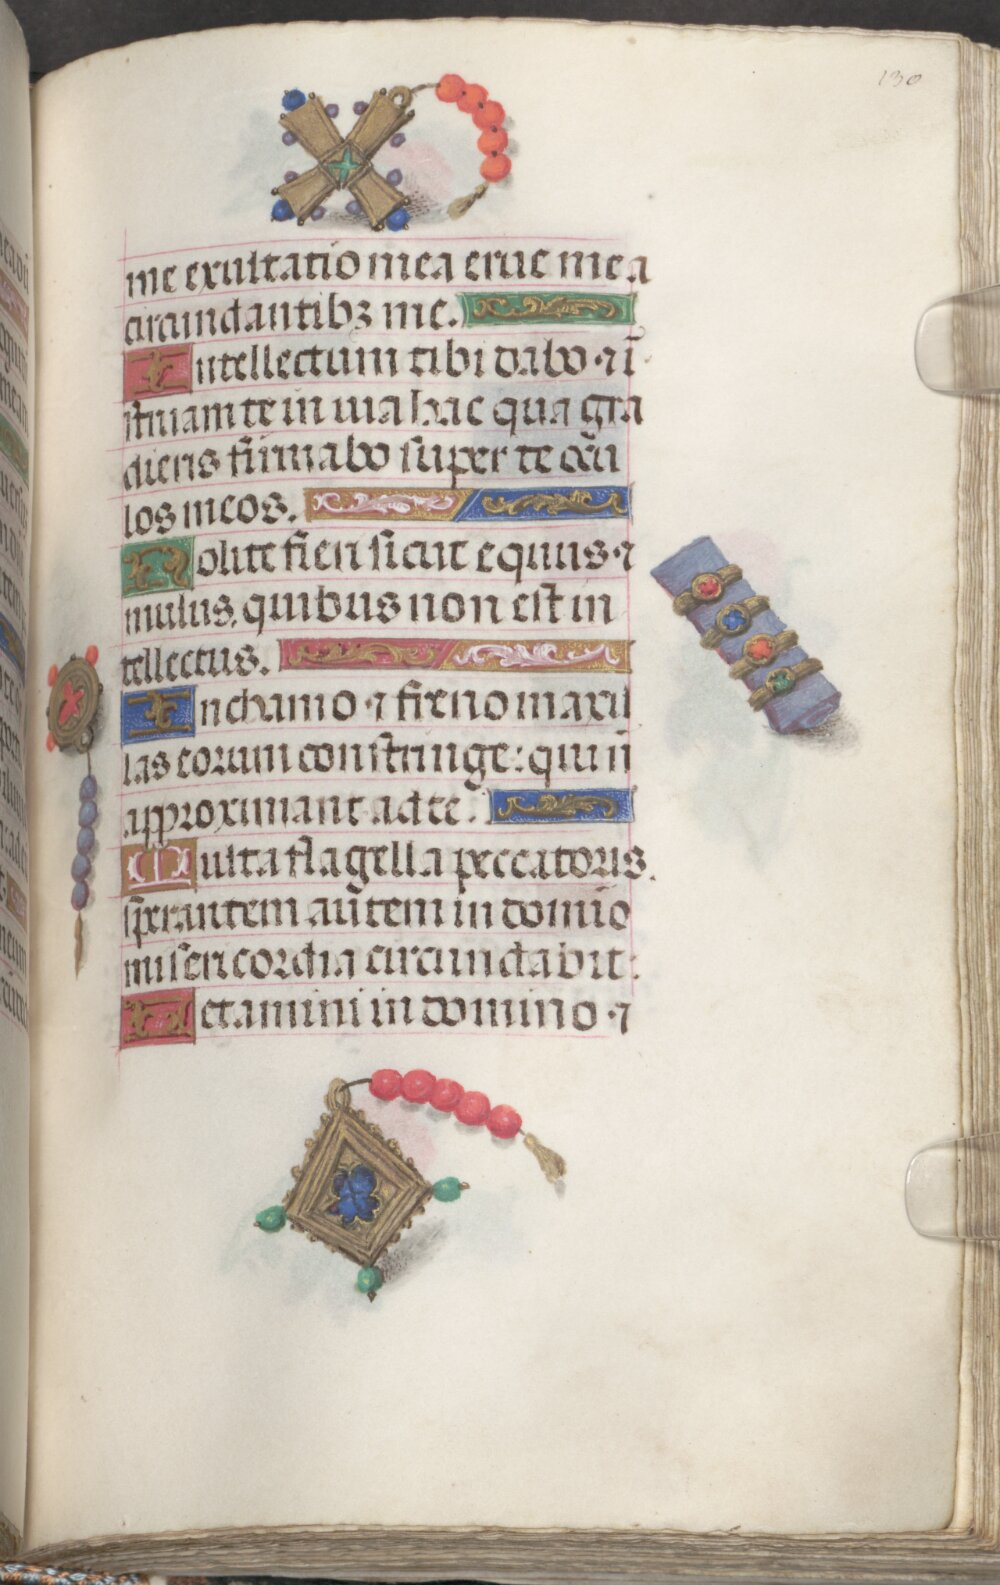 130
me exultatio mea erue me a
circundantibꝫ me.
Intellectum tibi dabo ⁊ ī
struam te in uia hac qua gra
dieris firmabo super te ocu
los meos.
Nolite fieri sicut equus ⁊
mulus, quibus non est in
tellectus.
In chamo ⁊ freno maxil
las eorum constringe: qui nō
approximant ad te.
Multa flagella peccatoris
sperantem autem in domīo
misericordia circundabit:
Letamini in domino ⁊